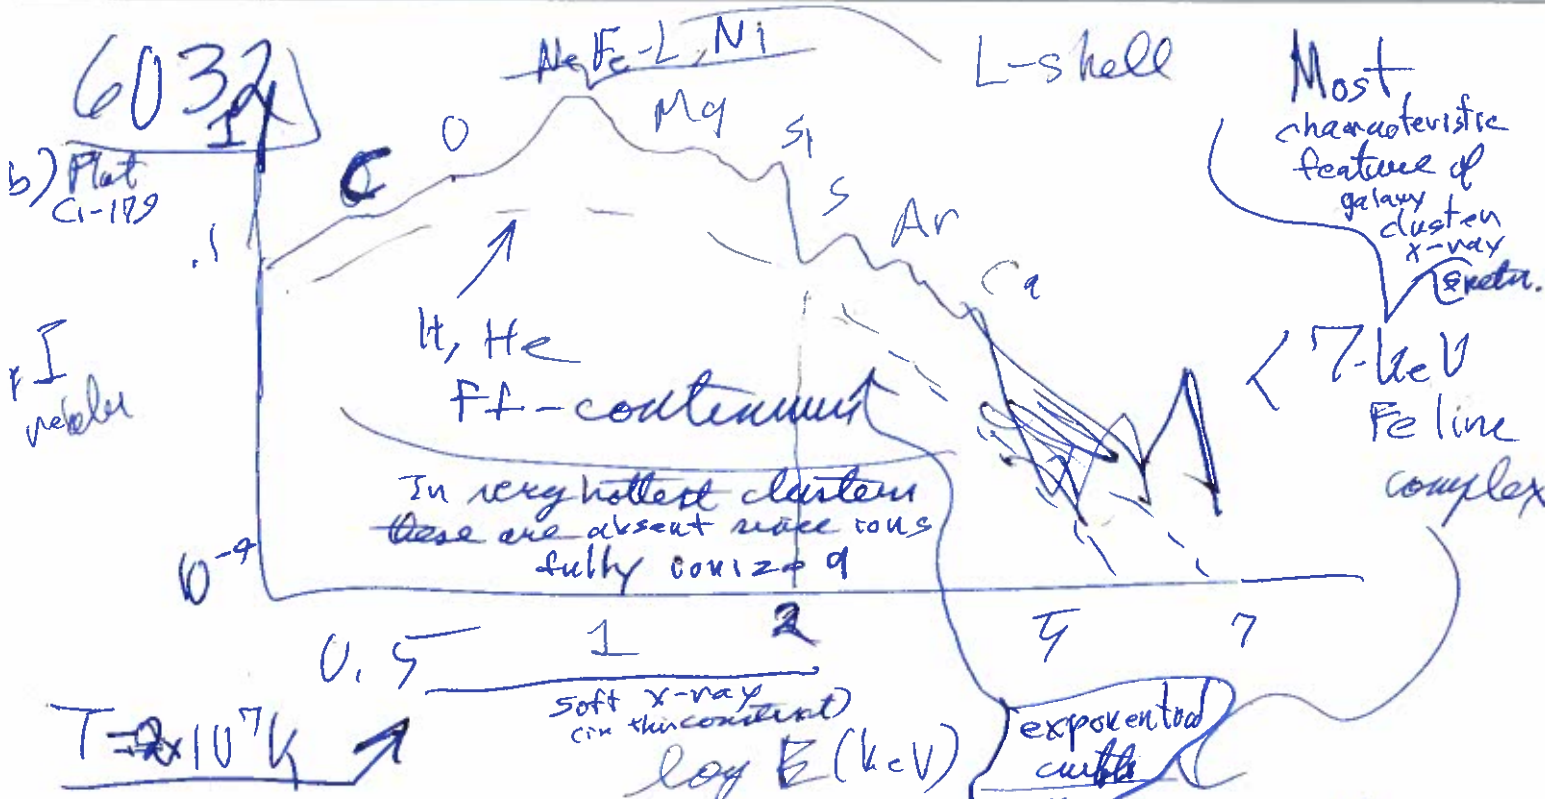 6032
b) Plot
Ci-179
Ne, Fe-L, Ni
L-shell
Most
characteristic
feature of
galaxy
cluster
x-ray
C
O
Mg
Si
S
Ar
Ca
1
.1
10^-9
I
H, He
ff-continuum
7-keV
Fe line
complex
In very hottest clusters
these are absent since ions
fully ionized
0.5
1
2
5
7
soft x-ray
(in this context)
T=2x10^7K
log E (keV)
exponential